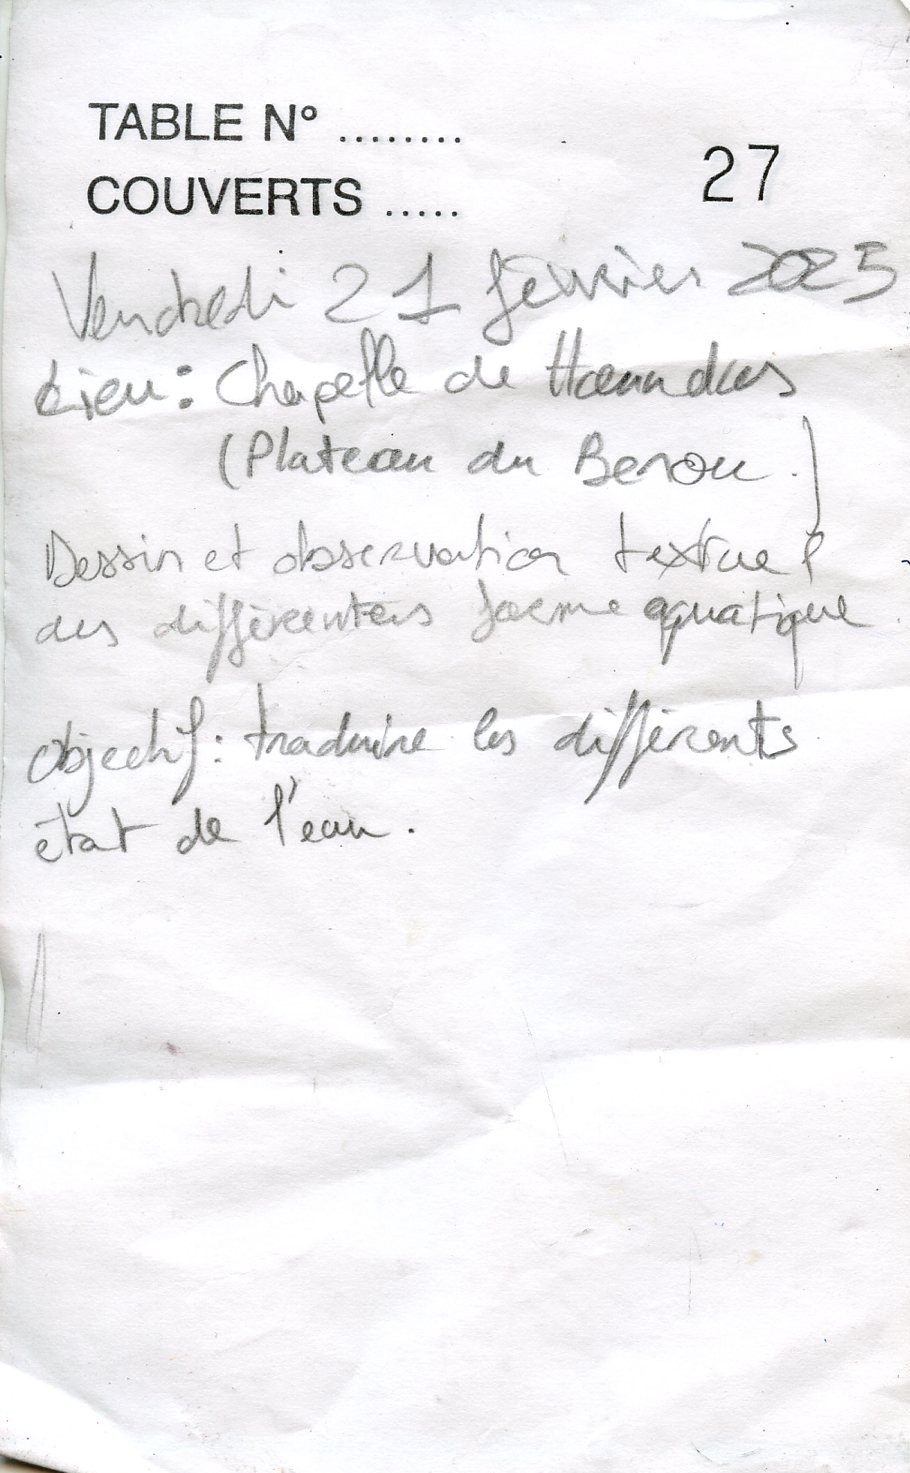 TABLE N° ........
COUVERTS ..... 27
Vendredi 21 février 2025
Lieu : Chapelle de
(Plateau du Benou.)
Dessin et observation
des différenters forme aquatique.
Objectif : traduire les différents
état de l'eau.